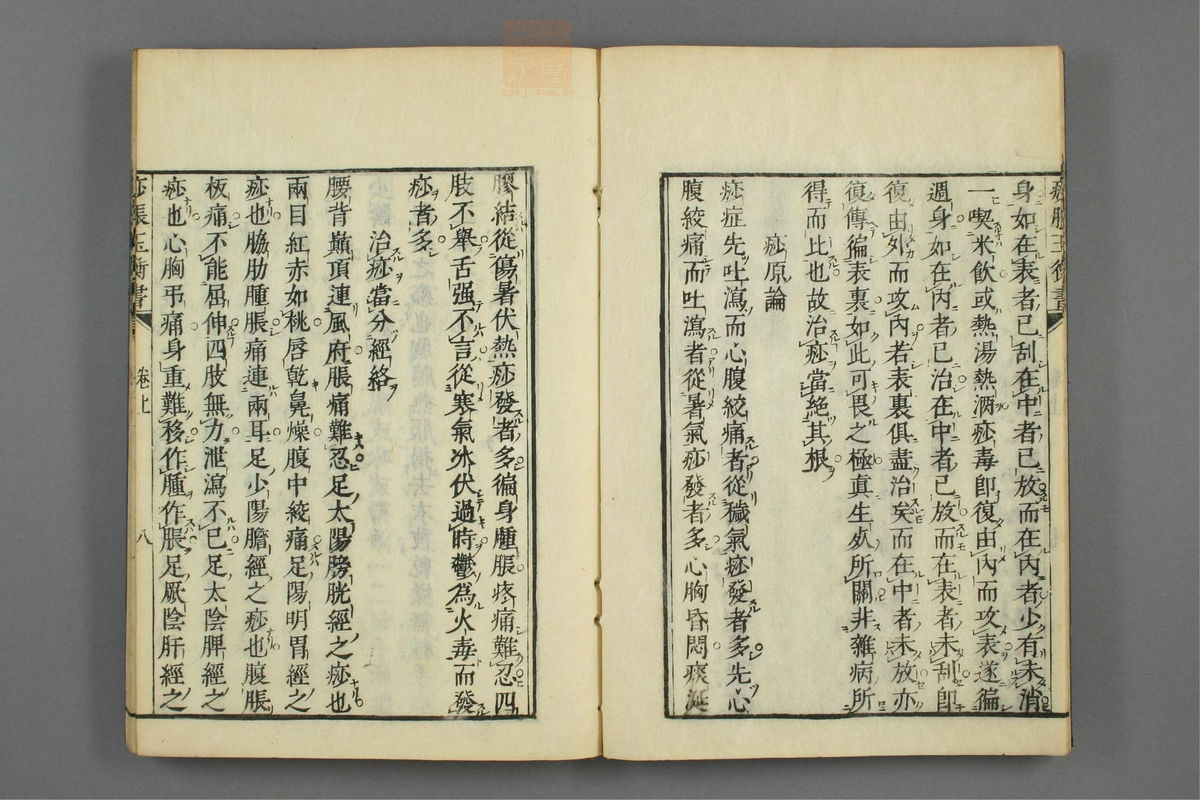 痧脹玉衡書
身如在表者已刮在中者已放而在內者少有未消
一喫米飲或熱湯熱酒痧毒卽復由內而攻表遂徧
週身如在內者已治在中者已放而在表者未刮卽
復由外而攻內若表裏俱盡治矣而在中者未放亦
復傳徧表裏如此可畏之極真生死所關非雜病所
得而比也故治痧當絕其根
痧原論
痧症先吐瀉而心腹絞痛者從穢氣痧發者多先心
腹絞痛而吐瀉者從暑氣痧發者多心胸昏悶痰涎
膠結從傷暑伏熱痧發者多徧身腫脹疼痛難忍四
肢不舉舌强不言從寒氣冰伏過時鬱爲火毒而發
痧者多
治痧當分經絡
腰背巔頂連風府脹痛難忍足太陽膀胱經之痧也
兩目紅赤如桃唇乾鼻燥腹中絞痛足陽明胃經之
痧也脇肋腫脹痛連兩耳足少陽膽經之痧也腹脹
板痛不能屈伸四肢無力泄瀉不已足太陰脾經之
痧也心胸弔痛身重難移作腫作脹足厥陰肝經之
痧脹玉衡書 卷上 八